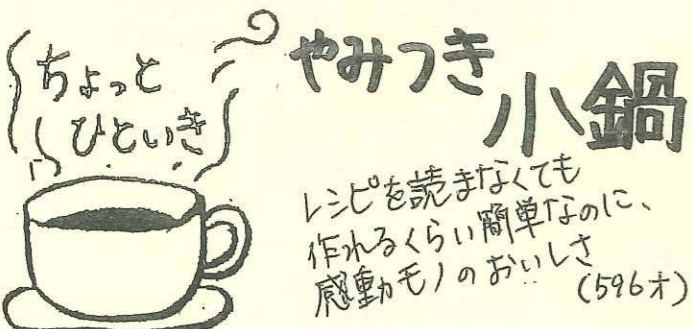 ちょっと
ひといき
やみつき
小鍋
レシピを読まなくても
作れるくらい簡単なのに、
感動モノのおいしさ
(596オ)